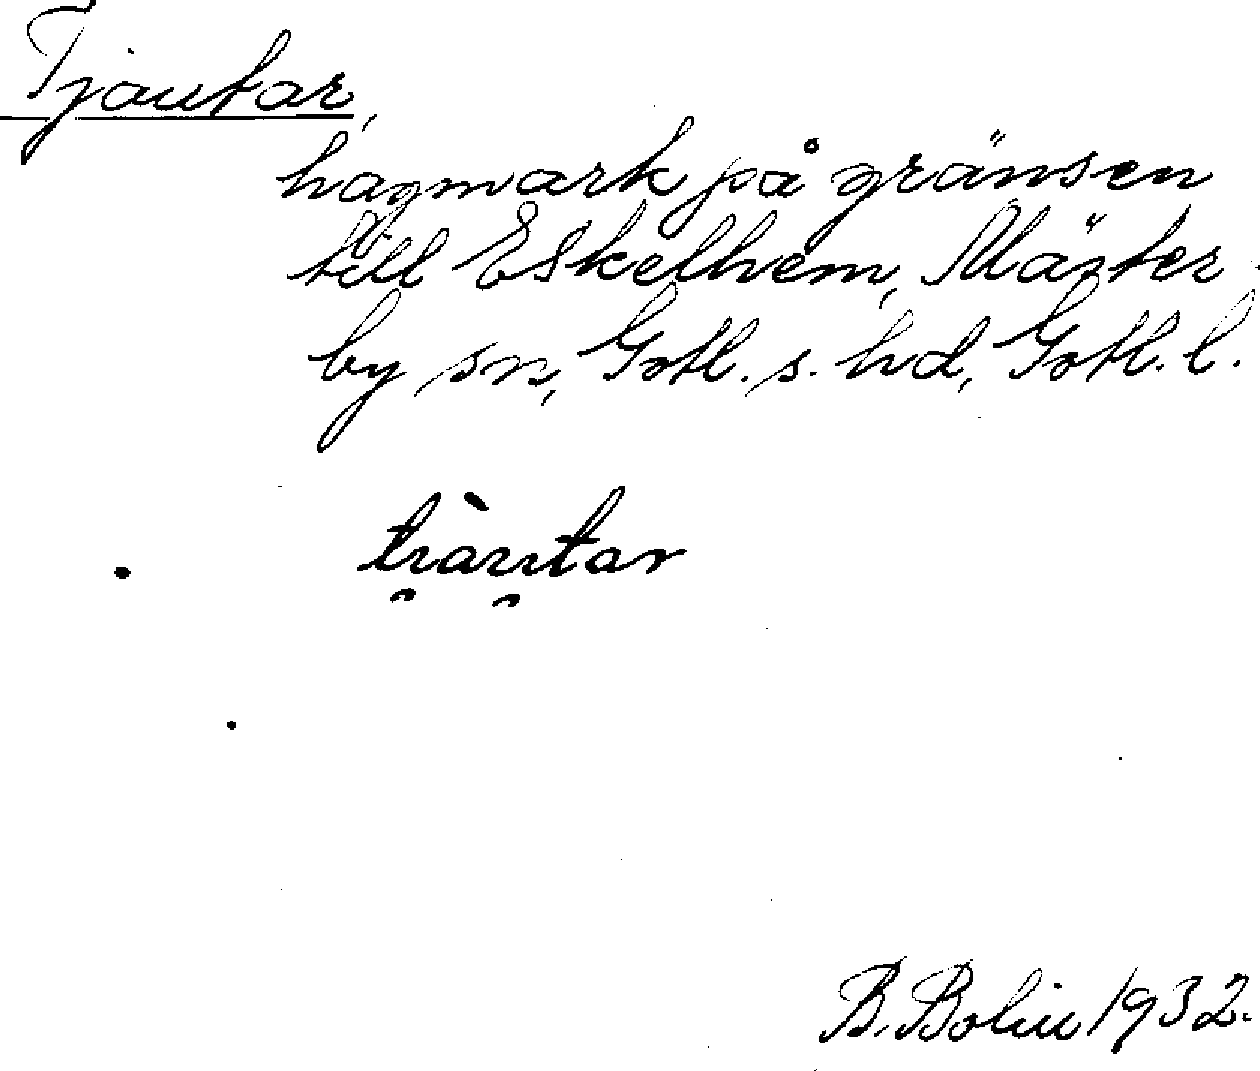 Tjautar,
hagmark på gränsen
till Eskelhem, Mäster-
by sn, Gotl. s. hd, Gotl. l.
ti̯àu̯tar
B. Bolin 1932.